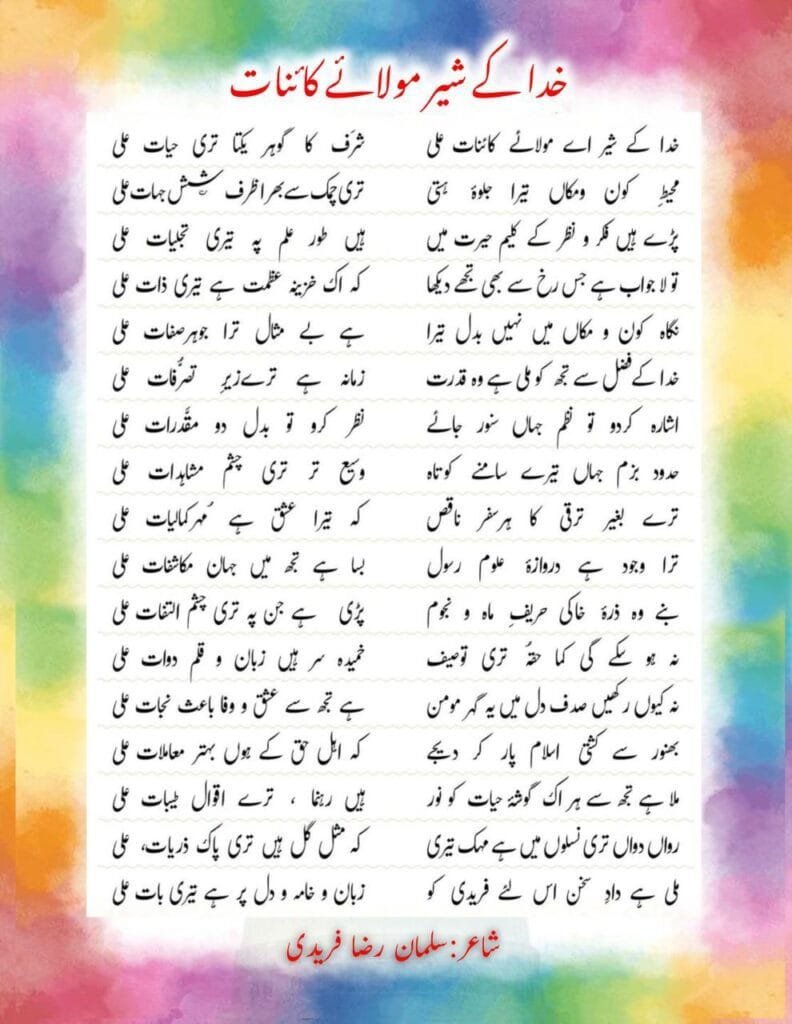 خدا کے شیر مولائے کائنات
خدا کے شیر اے مولائے کائنات علی شرَف کا گوہر یکتا تری حیات علی
محیطِ کون ومکاں تیرا جلوۂ ہستی تری چمک سے بھرا ظرف شش جہات علی
پڑے ہیں فکر و نظر کے کلیم حیرت میں ہیں طور علم پہ تیری تجلیات علی
تو لا جواب ہے جس رخ سے بھی تجھے دیکھا کہ اک خزینہ عظمت ہے تیری ذات علی
نگاہ کون و مکاں میں نہیں بدل تیرا ہے بے مثال ترا جوہر صفات علی
خدا کے فضل سے تجھ کو ملی ہے وہ قدرت زمانہ ہے ترے زیرِ تصرُّفات علی
اشارہ کردو تو نظم جہاں سنور جائے نظر کرو تو بدل دو مقدَّرات علی
حدود بزم جہاں تیرے سامنے کوتاہ وسیع تر تری چشم مشاہدات علی
ترے بغیر ترقی کا ہر سفر ناقص کہ تیرا عشق ہے مُہر کمالیات علی
ترا وجود ہے دروازۂ علوم رسول بسا ہے تجھ میں جہان مکاشفات علی
بنے وہ ذرۂ خاکی حریفِ ماہ و نجوم پڑی ہے جن پہ تری چشم التفات علی
نہ ہو سکے گی کما حقہٗ تری توصیف خمیدہ سر ہیں زبان و قلم دوات علی
نہ کیوں رکھیں صدف دل میں یہ گہر مومن ہے تجھ سے عشق و وفا باعث نجات علی
بھنور سے کشتی اسلام پار کر دیجے کہ اہل حق کے ہوں بہتر معاملات علی
ملا ہے تجھ سے ہر اک گوشۂ حیات کو نور ہیں رہنما ، ترے اقوال طیبات علی
رواں دواں تری نسلوں میں ہے مہک تیری کہ مثل گل ہیں تری پاک ذریات، علی
ملی ہے دادِ سخن اس لئے فریدی کو زبان و خامہ و دل پر ہے تیری بات علی
شاعر: سلمان رضا فریدی